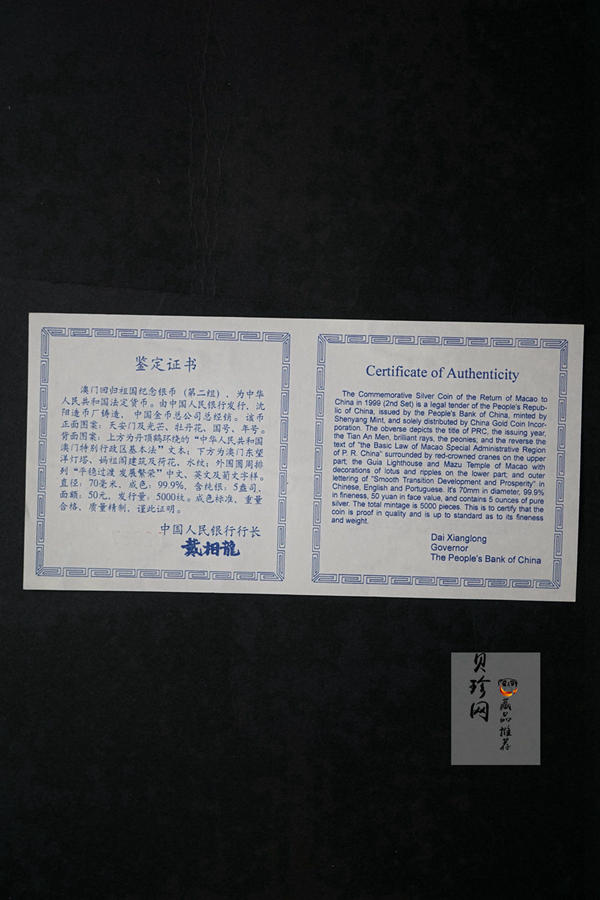 鉴定证书
澳门回归祖国纪念银币（第二组），为中华
人民共和国法定货币。由中国人民银行发行，沈
阳造币厂铸造，中国金币总公司总经销。该币
正面图案：天安门及光芒、牡丹花、国号、年号。
背面图案：上方为丹顶鹤环绕的“中华人民共和国
澳门特别行政区基本法”文本；下方为澳门东望
洋灯塔、妈祖阁建筑及荷花、水纹；外围圆周排
列“平稳过渡 发展繁荣”中文、英文及葡文字样。
直径：70毫米，成色：99.9%，含纯银：5盎司，
面额：50元，发行量：5000枚。成色标准，重量
合格、质量精制，谨此证明。
中国人民银行行长
戴相龍
Certificate of Authenticity
The Commemorative Silver Coin of the Return of Macao to
China in 1999 (2nd Set) is a legal tender of the People's Repub-
lic of China, issued by the People's Bank of China, minted by
Shenyang Mint, and solely distributed by China Gold Coin Incor-
poration. The obverse depicts the title of PRC, the issuing year,
the Tian An Men, brilliant rays, the peonies; and the reverse the
text of "the Basic Law of Macao Special Administrative Region
of P. R. China" surrounded by red-crowned cranes on the upper
part; the Guia Lighthouse and Mazu Temple of Macao with
decorations of lotus and ripples on the lower part; and outer
lettering of "Smooth Transition Development and Prosperity" in
Chinese, English and Portuguese. It's 70mm in diameter, 99.9%
in fineness, 50 yuan in face value, and contains 5 ounces of pure
silver. The total mintage is 5000 pieces. This is to certify that the
coin is proof in quality and is up to standard as to its fineness
and weight.
Dai Xianglong
Governor
The People's Bank of China
贝珍网
藏品推荐